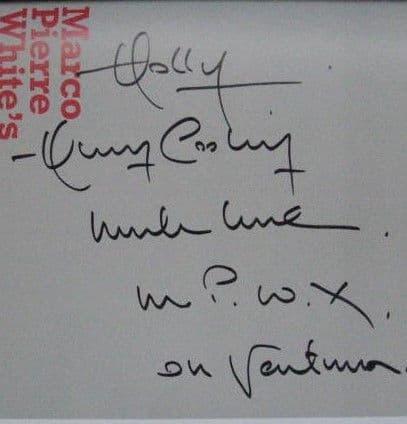 Marco
Pierre
White's
Holly
Cooking
much love.
M P. W. X.
on Ventura.